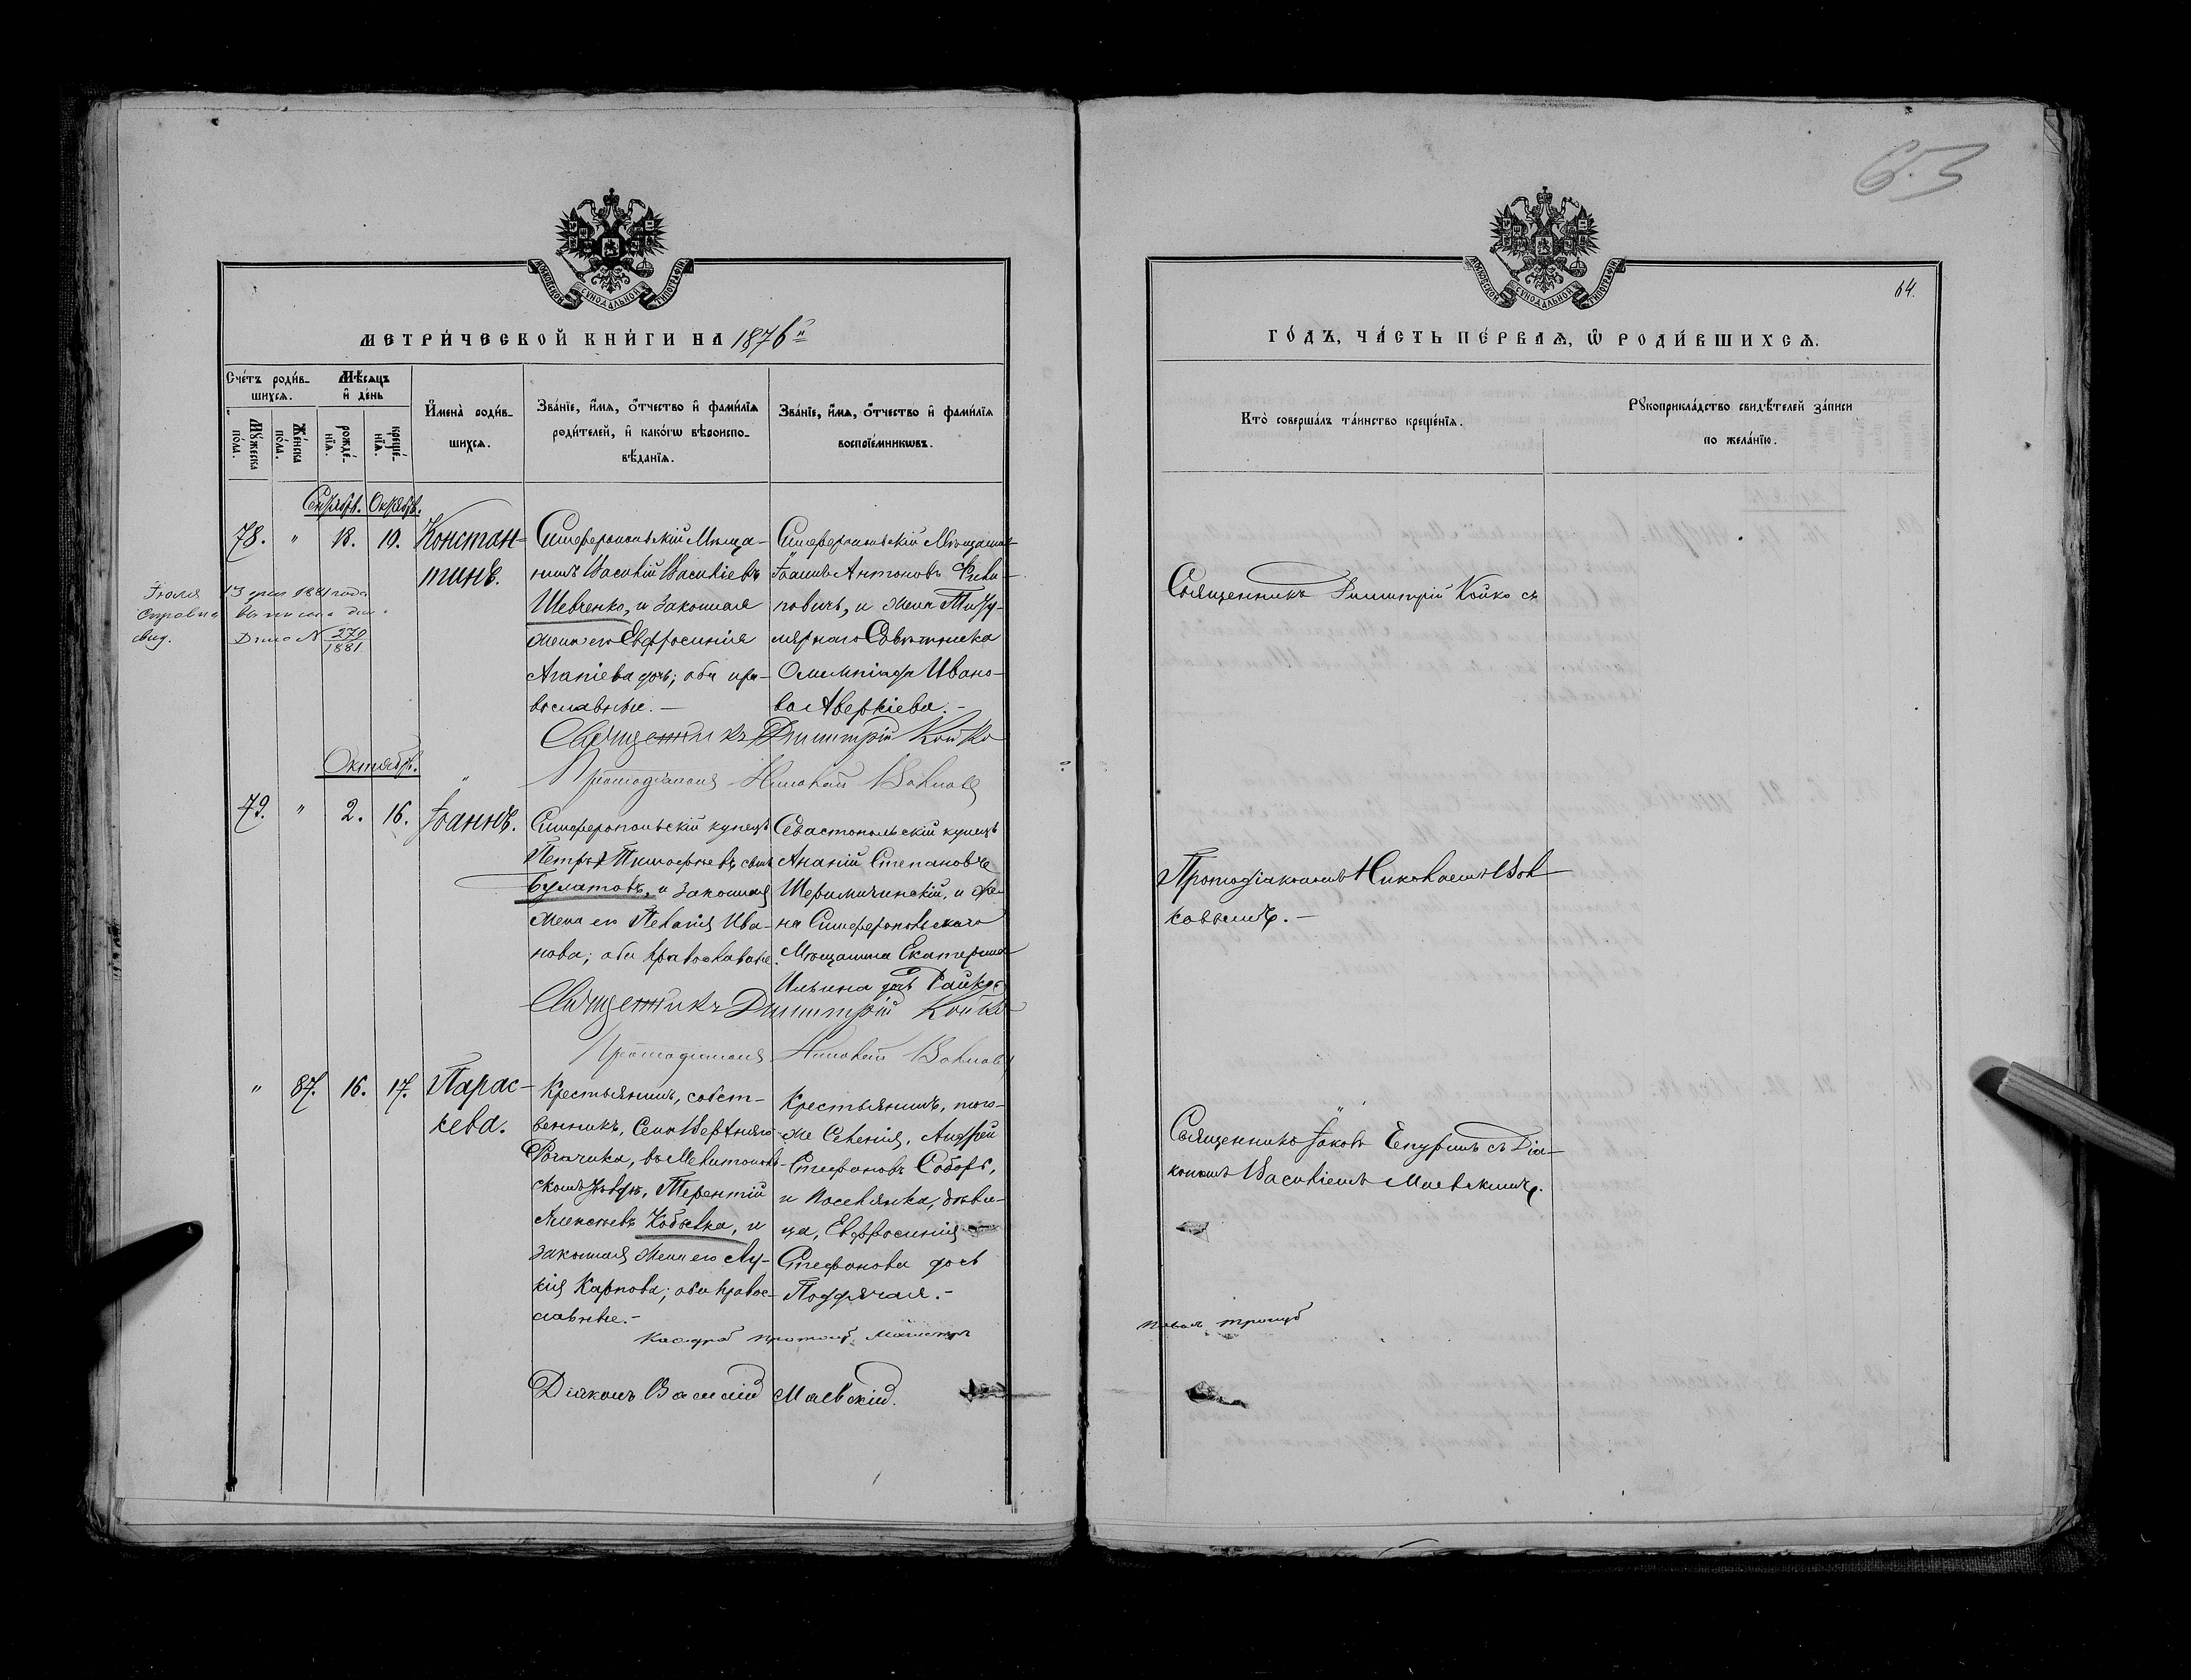 63
64.
МОСКОВСКОЙ СѴНОДАЛЬНОЙ ТИПОГРАФІИ
МЕТРИ́ЧЕСКОЙ КНИ́ГИ НА 1876й
Сче́тъ роди́в-
шихсѧ.
Мꙋ́жеска по́ла.
Же́нска по́ла.
Мѣ́сѧцъ
и҆ де́нь
рожде́-
нїѧ.
креще́-
нїѧ.
И҆мена̀ роди́в-
шихсѧ.
Зва́нїе, и҆́мѧ, о҆́тчество и҆ фами́лїѧ
роди́телей, и҆ како́гѡ вѣроиспо-
вѣ́данїѧ.
Зва́нїе, и҆́мѧ, о҆́тчество и҆ фами́лїѧ
воспрїе́мникѡвъ.
Сентябр. Октябр.
78. " 18. 19.
Констан-
тинъ.
Симферопольскій Мѣща-
нинъ Василій Васильевъ
Шевченко, и законная
жена его Евфросинія
Агапіева дочь; оба пра-
вославные. —
Симферопольскій Мѣщанинъ
Іоаннъ Антоновъ
повичъ, и жена Титу-
лярнаго Совѣтника
Олимпіада Ивано-
ва Аверкіева. —
Священникъ Димитрій Койко
Протодіаконъ Николай Волковъ
Іюля 13 дня 1881 года
Справка
свид.
Дѣло № 270
1881.
Октябр.
79. " 2. 16.
Іоаннъ.
Симферопольскій купецъ
Петръ Тимофѣевъ сынъ
Булатовъ, и законная
жена его Пелагія Ива-
нова; оба православные.
Севастопольскій купецъ
Ананій Степановъ
и же-
на Симферопольскаго
Мѣщанина Екатерина
Ильина дочь Райко
Священникъ Димитрій Койко
Протодіаконъ Николай Волковъ
" 87. 16. 17.
Парас-
кева.
Крестьянинъ, собст-
венникъ, Села Верхняго
Рогачика, въ Мелитополь-
скомъ уѣздѣ, Терентій
Алексѣевъ Кобылка, и
законная жена его Лу-
кія Карпова; оба правос-
лавные. —
Крестьянинъ, того-
же Селенія, Андрей
Стефановъ Соборъ,
и поселянка, дѣви-
ца, Евфросинія
Стефанова дочь
Поддячая. —
Каѳедр протоі
Діаконъ Василій Маевскій.
ГО́ДЪ, ЧА́СТЬ ПЕ́РВАѦ, Ѽ РОДИ́ВШИХСѦ.
Кто̀ соверша́лъ та́инство креще́нїѧ.
Рꙋкоприкла́дство свидѣ́телей за́писи
по жела́нїю.
Священникъ Димитрій Койко съ
Протодіакономъ Николаемъ Вол-
ковымъ. —
Священникъ Іаковъ Чепуринъ съ Діа-
кономъ Василіемъ Маевскимъ.